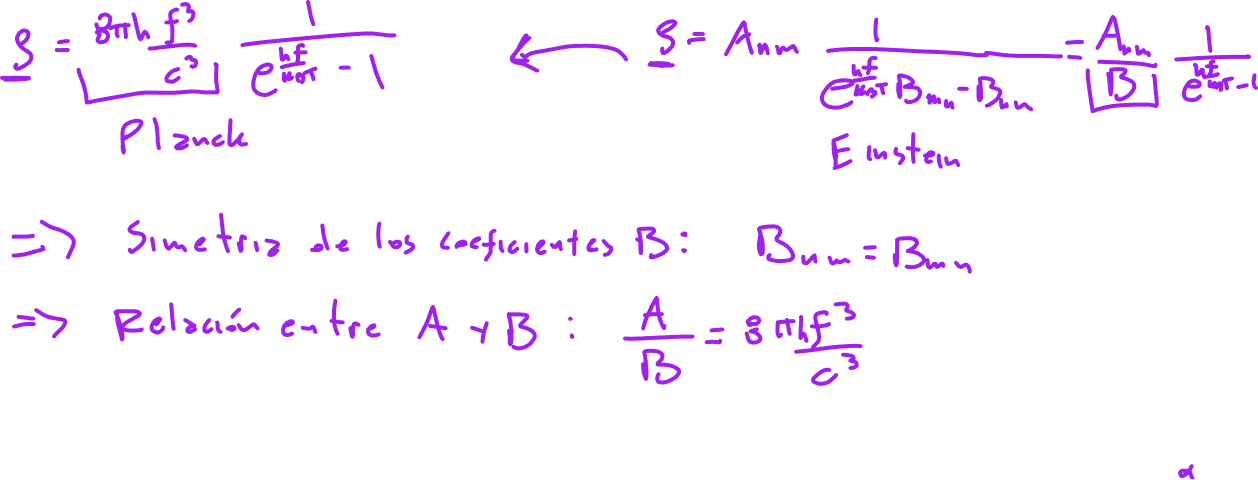 ρ = 8πh f³/c³ 1/(e^(hf/k_BT) - 1) ← ρ = A_nm 1/(e^(hf/k_BT) B_mn - B_nm) = A_nm/B 1/(e^(hf/k_BT) - 1)
Planck Einstein
=> Simetria de los coeficientes B: B_nm = B_mn
=> Relación entre A y B: A/B = 8πhf³/c³